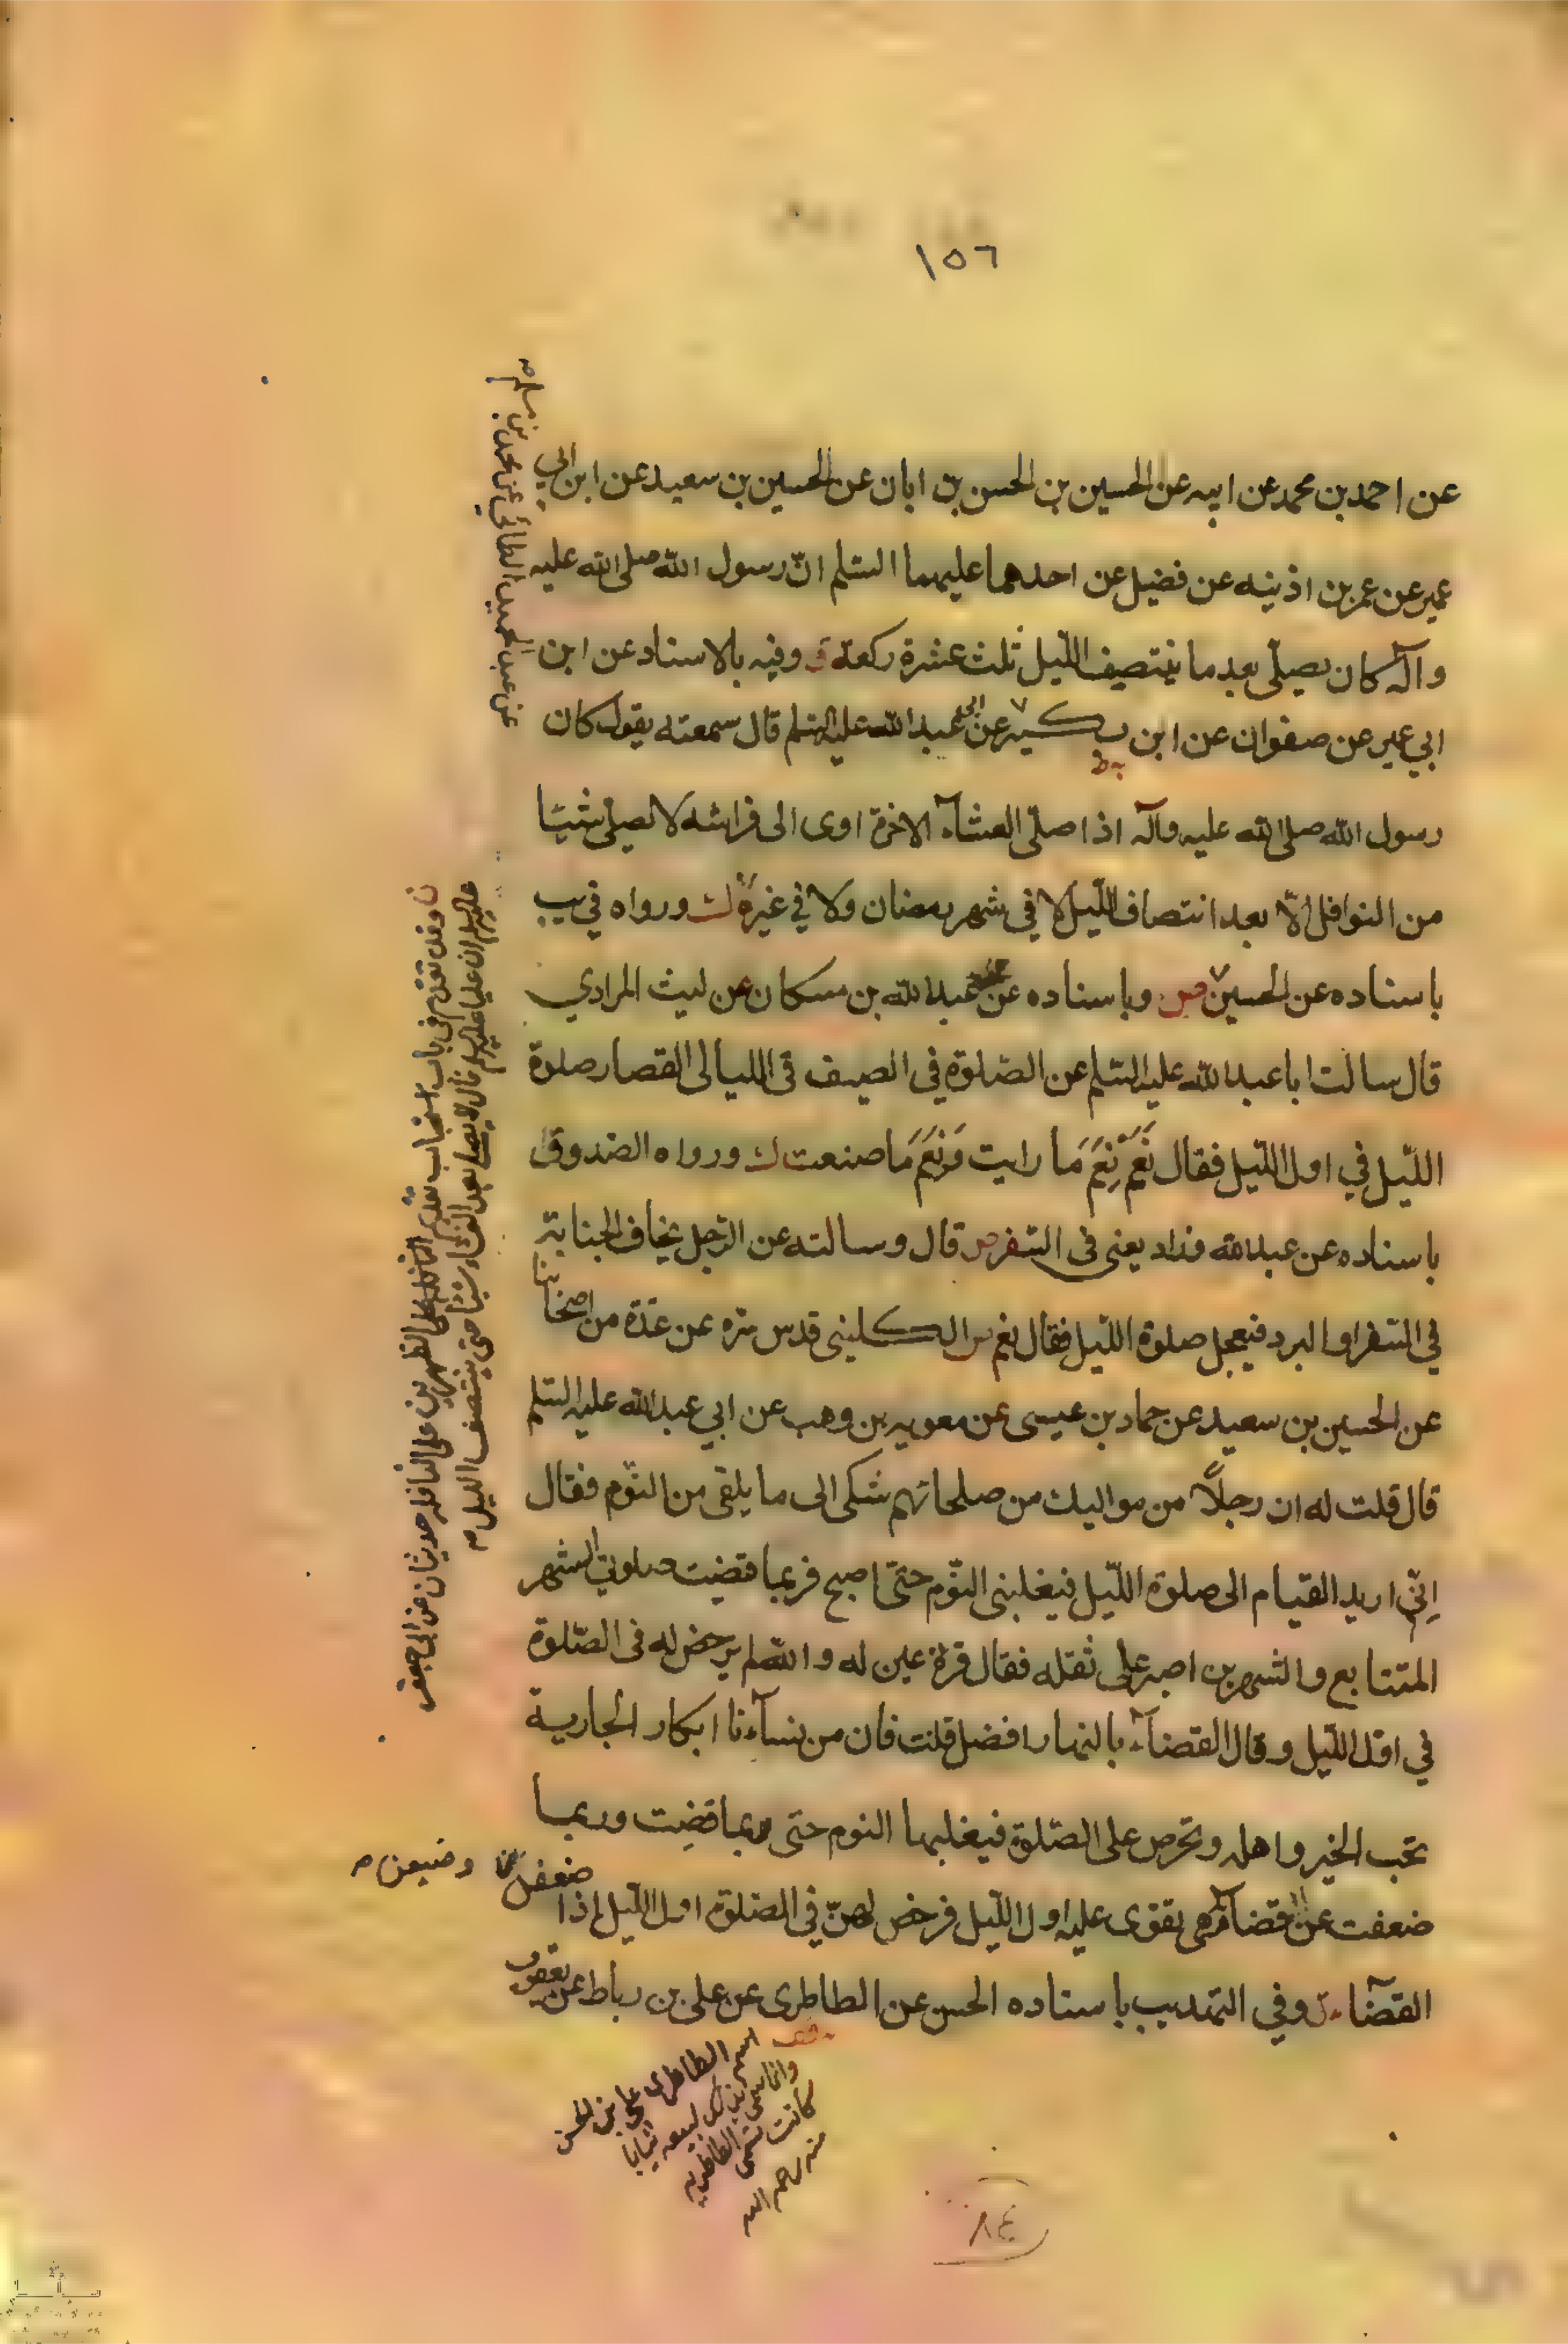 ١٥٦
عن احمد بن محمد عن ابيه عن الحسين بن الحسن بن ابان عن الحسين بن سعيد عن ابن ابي
عمير عن عمر بن اذينه عن فضيل عن احدهما عليهما السّلم انّ رسول الله صلى الله عليه
وآله كان يصلّي بعد ما ينتصف اللّيل ثلث عشرة ركعة وفيه بالاسناد عن ابن
ابي عمير عن صفوان عن ابن بكير عن ابي عبد الله عليه السّلم قال سمعته يقول كان
رسول الله صلى الله عليه وآله اذا صلّى العشآء الاخرة اوى الى فراشه لا يصلّي شيئا
من النوافل الّا بعد انتصاف اللّيل لا في شهر رمضان ولا في غيره ورواه في يب
باسناده عن الحسين وباسناده عن عبد الله بن مسكان عن ليث المرادي
قال سالت ابا عبد الله عليه السّلم عن الصّلوة في الصيف في الليالي القصار صلوة
اللّيل في اول اللّيل فقال نَعَمْ نِعَمَ مَا رايت وَنِعَمَ مَا صنعت ورواه الصّدوق
باسناده عن عبد الله فزاد يعنى فى السّفر قال وسالته عن الرّجل يخاف الجنابة
في السّفر او البرد فيعجل صلوة اللّيل فقال نعم الكليني قدس سّره عن عدّة من اصحابنا
عن الحسين بن سعيد عن حماد بن عيسى عن معويه بن وهب عن ابي عبد الله عليه السّلم
قال قلت له ان رجلاً من مواليك من صلحائهم شكى الى ما يلقى من النّوم فقال
اِنّي اريد القيام الى صلوة اللّيل فيغلبنى النّوم حتّى اصبح فربما قضيت صلوتي الشهر
المتتابع والشهرين اصبر على ثقله فقال قرة عين له والله لم يرخص له فى الصّلوة
في اوّل اللّيل وقال القضآء بالنهار افضل قلت فان من نسآءنا ابكار الجارية
تحب الخير واهله وتحرص على الصّلوة فيغلبها النوم حتى ربما قضِت وربما
ضعفت عن قضآئه وهى تقوى عليه اول اللّيل فرخص لهنّ في الصّلوة اول اللّيل اذا
ضعفن
وضيعن
القضآء وفي التهذيب باسناده الحسن عن الطاطرى عن على بن رباط عن يعقوب
عن عبد الحميد الطائي عن محمد بن مسلم
ن وقد تقدم في باب استحباب تقديم النافلة على الظهرين على النافله حديثان عن ابى جعفر
عليه السلم ان عليا عليه السلم قال لا يصلى بعد العشاء شيئا حتى ينتصف الليل
اسم الطاطرى على بن الحسن
وانما سمي بذلك لبيعه ثيابا
كانت تسمى الطاطريه
منه رحمه الله
٨٤